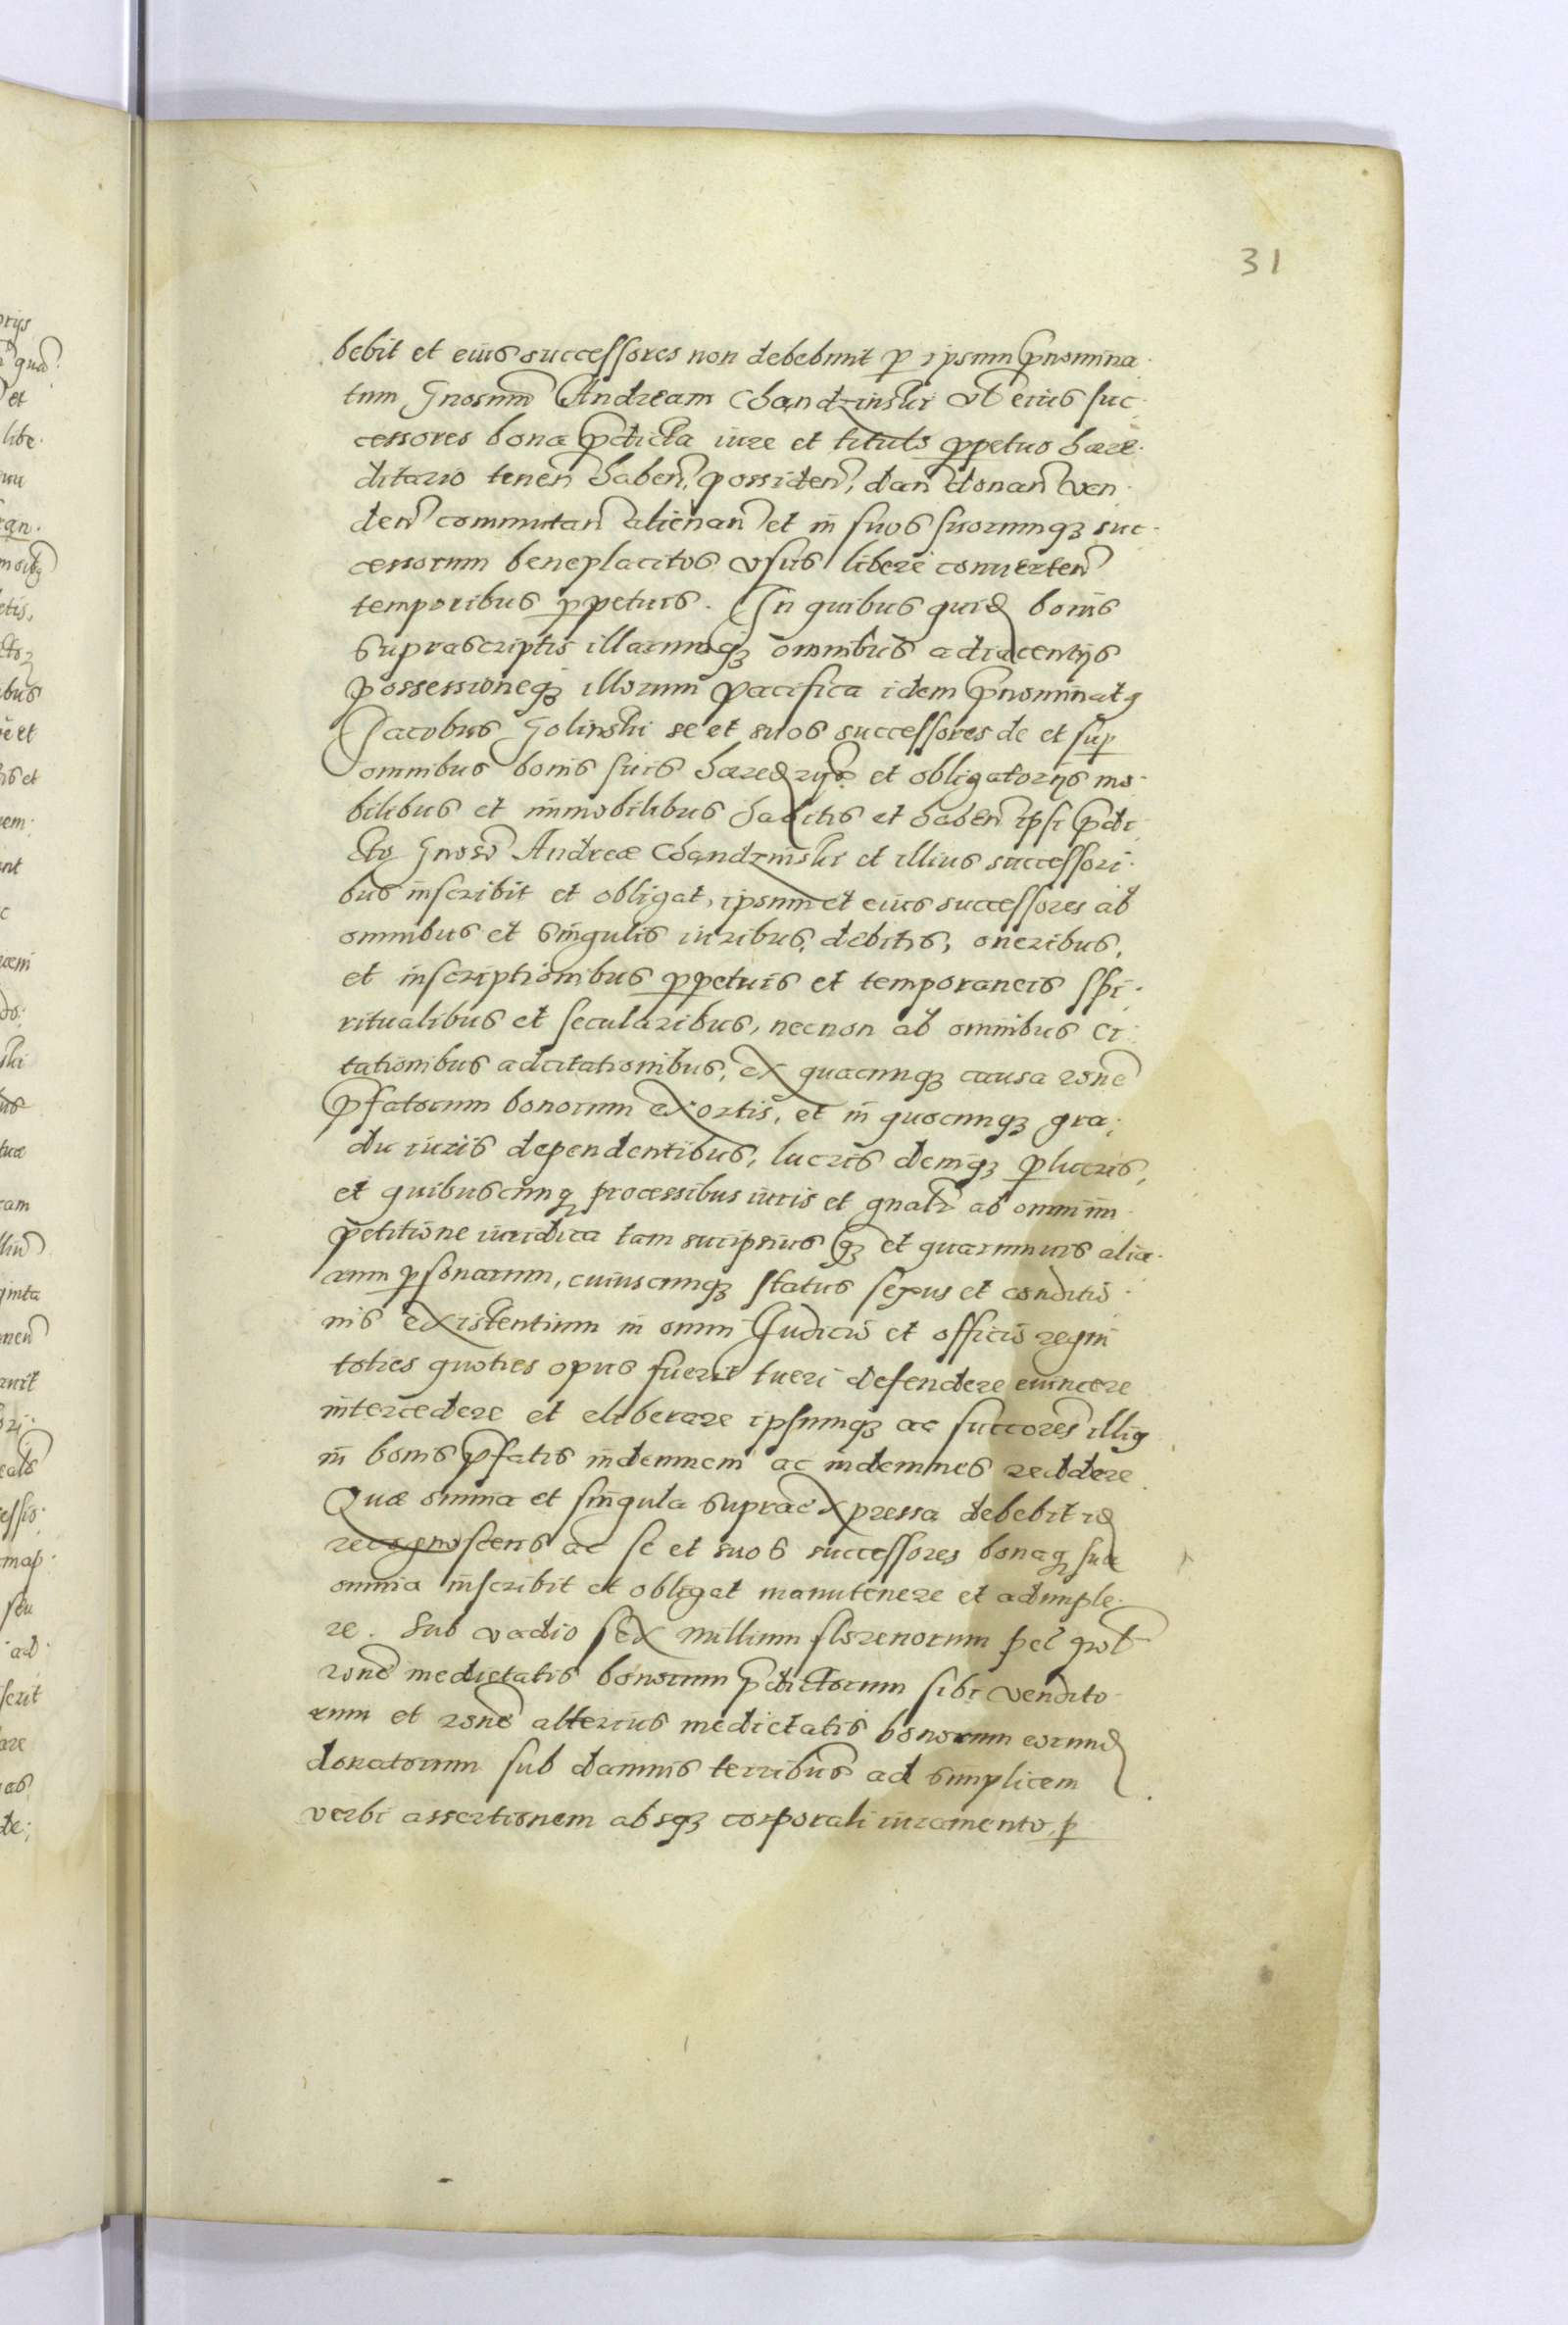 31
bebit et eius successores non debebunt p ipsum pnomina
tum Gnosum Andream Chandzinski vl eius suc
cessores bona pdicta iure et titulo ppetuo hære
ditario tenen haben, possiden, dan donan ven
den commutan alienan et in suos suorumq3 suc
cessorum beneplacitos vsus libere conuerten
temporibus ppetuis. In quibus quid bonis
suprascriptis illarumq3 omnibus adiacentijs
possessioneq3 illorum pacifica idem pnominatq
Jacobus Golinski se et suos successores de et sup
omnibus bonis suis hæredrijs et obligatorijs mo
bilibus et immobilibus habitis et haben ipsi pdi
cto Gnoso Andreæ Chandzinski et illius successori
bus inscribit et obligat, ipsum et eius successores ab
omnibus et singulis iuribus, debitis, oneribus,
et inscriptionibus ppetuis et temporaneis spi
ritualibus et secularibus, necnon ab omnibus ci
tationibus adcitationibus, ex quacunq3 causa rone
pfatorum bonorum exortis, et in quocunq3 gra
du iuris dependentibus, lucris deniq3 plucris,
et quibuscunq processibus iuris et gnalr ab omni im
petitione iuridica tam suiipsius q3 et quarumuis alia
rum psonarum, cuiuscunq3 status sexus et conditio
nis existentium in omni Judicio et officio regni
toties quoties opus fuerit tueri defendere euincere
intercedere et eliberare ipsumq3 ac succores illiq
in bonis pfatis indemnem ac indemnes reddere
Quæ omnia et singula supraexpressa debebit id
recognoscens ac se et suos successores bonaq sua
omnia inscribit et obligat manutenere et adimple
re. Sub vadio sex millium florenorum pel pol
rone medietatis bonorum pdictorum sibi vendito
rum et rone alterius medietatis bonorum eorund
donatorum sub damnis terribus ad simplicem
verbi assertionem absq3 corporali iuramento, p